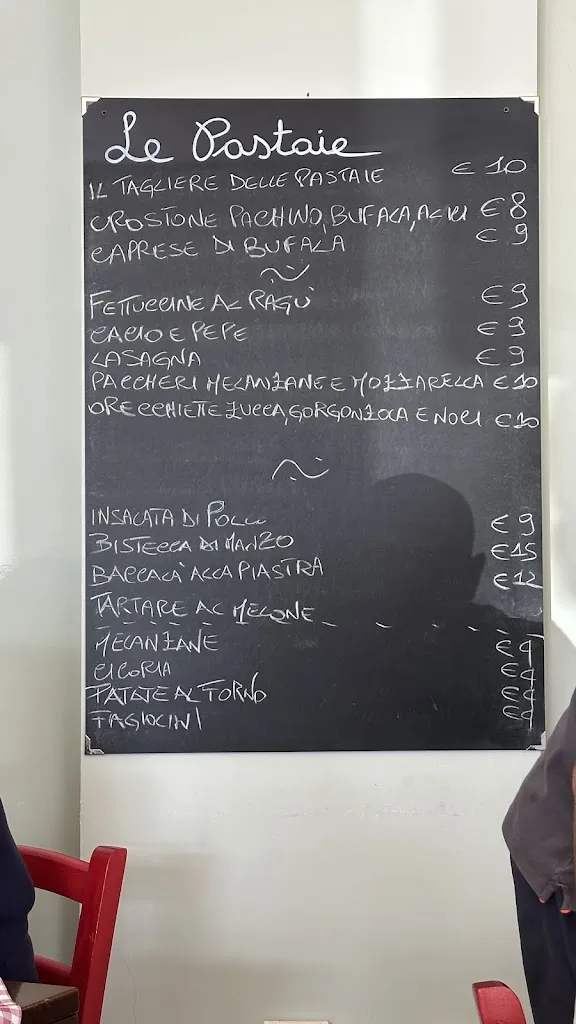 Le Pastaie
IL TAGLIERE DELLE PASTAIE € 10
CROSTONE PACHINO, BUFALA, ALICI € 8
CAPRESE DI BUFALA € 9
FETTUCCINE AL RAGÙ € 9
CACIO E PEPE € 9
LASAGNA € 9
PACCHERI MELANZANE E MOZZARELLA € 10
ORECCHIETTE ZUCCA, GORGONZOLA E NOCI € 10
INSALATA DI POLLO € 9
BISTECCA DI MANZO € 15
BACCALÀ ALLA PIASTRA € 12
TARTARE AL MELONE
MELANZANE € 4
CICORIA € 4
PATATE AL FORNO € 4
FAGIOLINI € 4